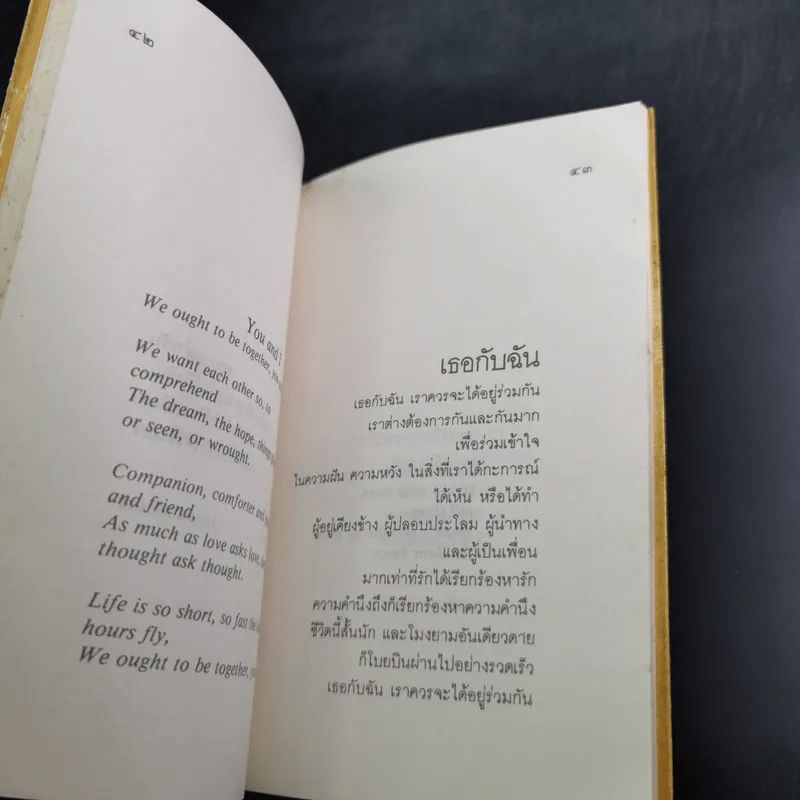 ๔๒
You and I
We ought to be together, you
We want each other so, to
comprehend
The dream, the hope, things
or seen, or wrought.
Companion, comforter and
and friend,
As much as love asks love,
thought ask thought.
Life is so short, so fast the
hours fly,
We ought to be together,
๔๓
เธอกับฉัน
เธอกับฉัน เราควรจะได้อยู่ร่วมกัน
เราต่างต้องการกันและกันมาก
เพื่อร่วมเข้าใจ
ในความฝัน ความหวัง ในสิ่งที่เราได้กะการณ์
ได้เห็น หรือได้ทำ
ผู้อยู่เคียงข้าง ผู้ปลอบประโลม ผู้นำทาง
และผู้เป็นเพื่อน
มากเท่าที่รักได้เรียกร้องหารัก
ความคำนึงถึงก็เรียกร้องหาความคำนึง
ชีวิตนี้สั้นนัก และโมงยามอันเดียวดาย
ก็โบยบินผ่านไปอย่างรวดเร็ว
เธอกับฉัน เราควรจะได้อยู่ร่วมกัน